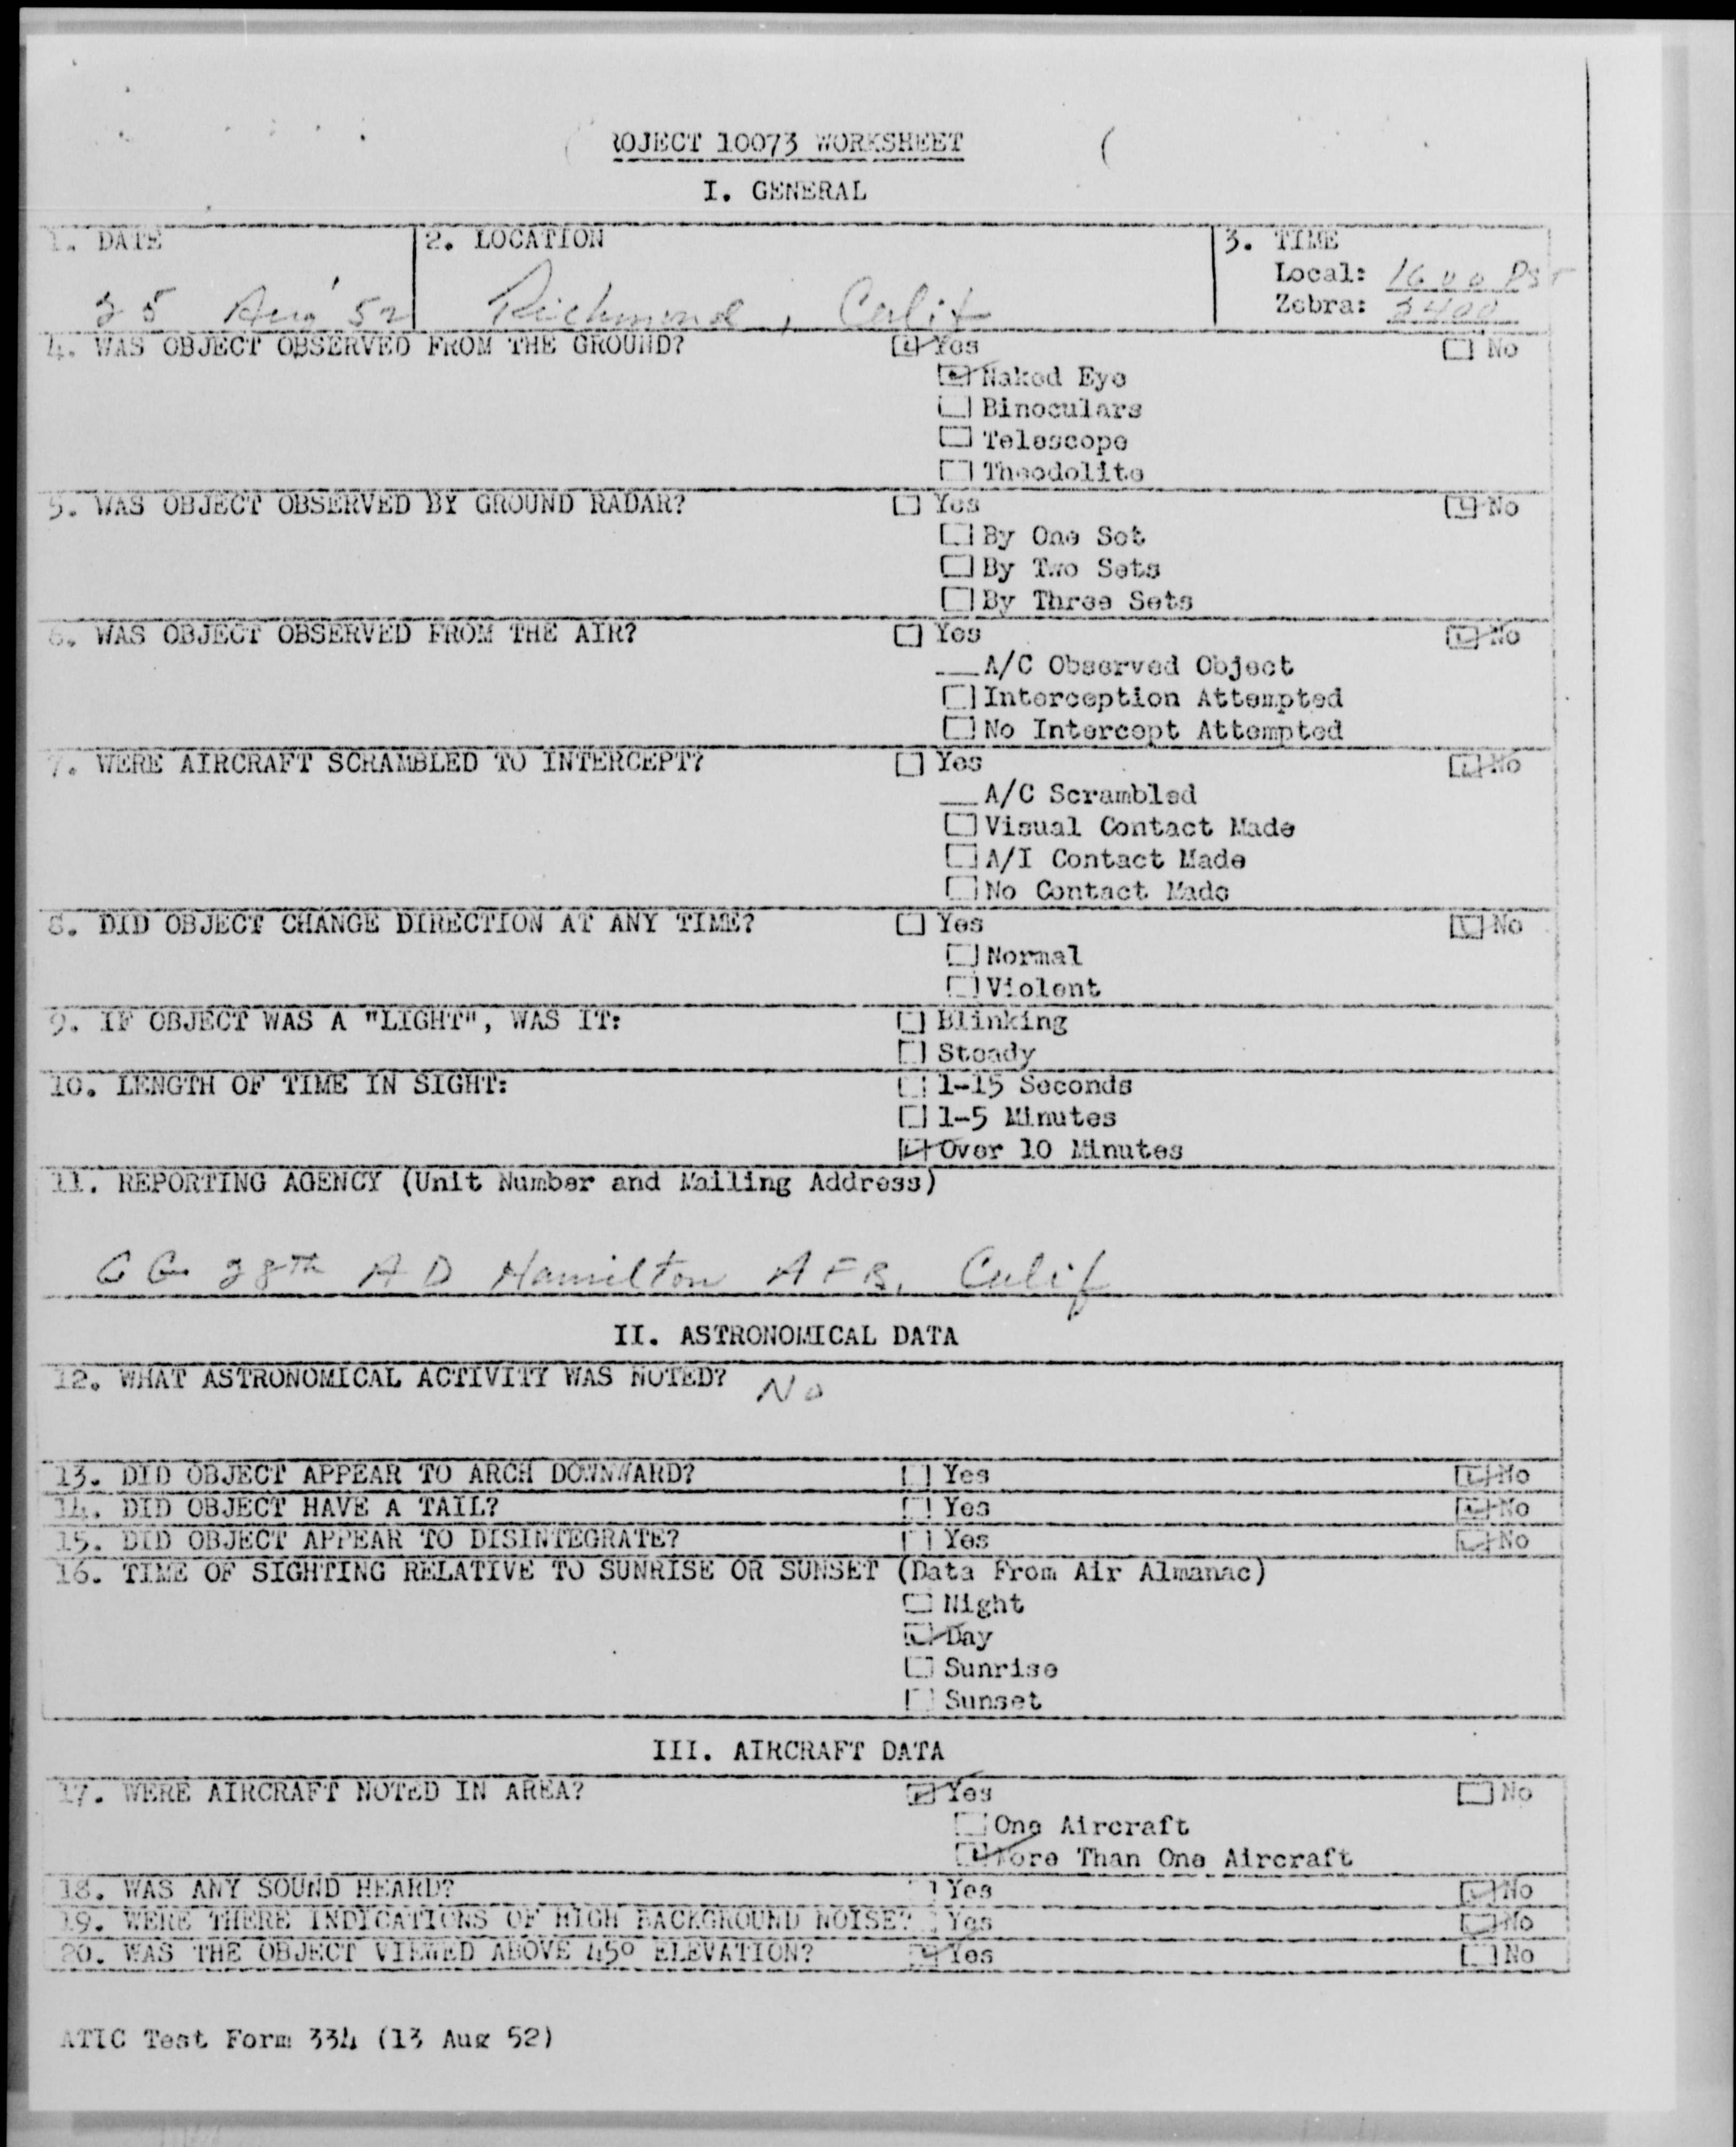 ROJECT 10073 WORKSHEET
I. GENERAL
1. DATE
2. LOCATION
3. TIME
Local: 1600 PST
Zebra: 2400
25 Aug 52
Richmond, Calif
4. WAS OBJECT OBSERVED FROM THE GROUND? Yes No
Naked Eye
Binoculars
Telescope
Theodolite
5. WAS OBJECT OBSERVED BY GROUND RADAR? Yes No
By One Set
By Two Sets
By Three Sets
6. WAS OBJECT OBSERVED FROM THE AIR? Yes No
A/C Observed Object
Interception Attempted
No Intercept Attempted
7. WERE AIRCRAFT SCRAMBLED TO INTERCEPT? Yes No
A/C Scrambled
Visual Contact Made
A/I Contact Made
No Contact Made
8. DID OBJECT CHANGE DIRECTION AT ANY TIME? Yes No
Normal
Violent
9. IF OBJECT WAS A "LIGHT", WAS IT: Blinking
Steady
10. LENGTH OF TIME IN SIGHT: 1-15 Seconds
1-5 Minutes
Over 10 Minutes
11. REPORTING AGENCY (Unit Number and Mailing Address)
CG 28th AD Hamilton AFB, Calif
II. ASTRONOMICAL DATA
12. WHAT ASTRONOMICAL ACTIVITY WAS NOTED? No
13. DID OBJECT APPEAR TO ARCH DOWNWARD? Yes No
14. DID OBJECT HAVE A TAIL? Yes No
15. DID OBJECT APPEAR TO DISINTEGRATE? Yes No
16. TIME OF SIGHTING RELATIVE TO SUNRISE OR SUNSET (Data From Air Almanac)
Night
Day
Sunrise
Sunset
III. AIRCRAFT DATA
17. WERE AIRCRAFT NOTED IN AREA? Yes No
One Aircraft
More Than One Aircraft
18. WAS ANY SOUND HEARD? Yes No
19. WERE THERE INDICATIONS OF HIGH BACKGROUND NOISE? Yes No
20. WAS THE OBJECT VIEWED ABOVE 45° ELEVATION? Yes No
ATIC Test Form 334 (13 Aug 52)